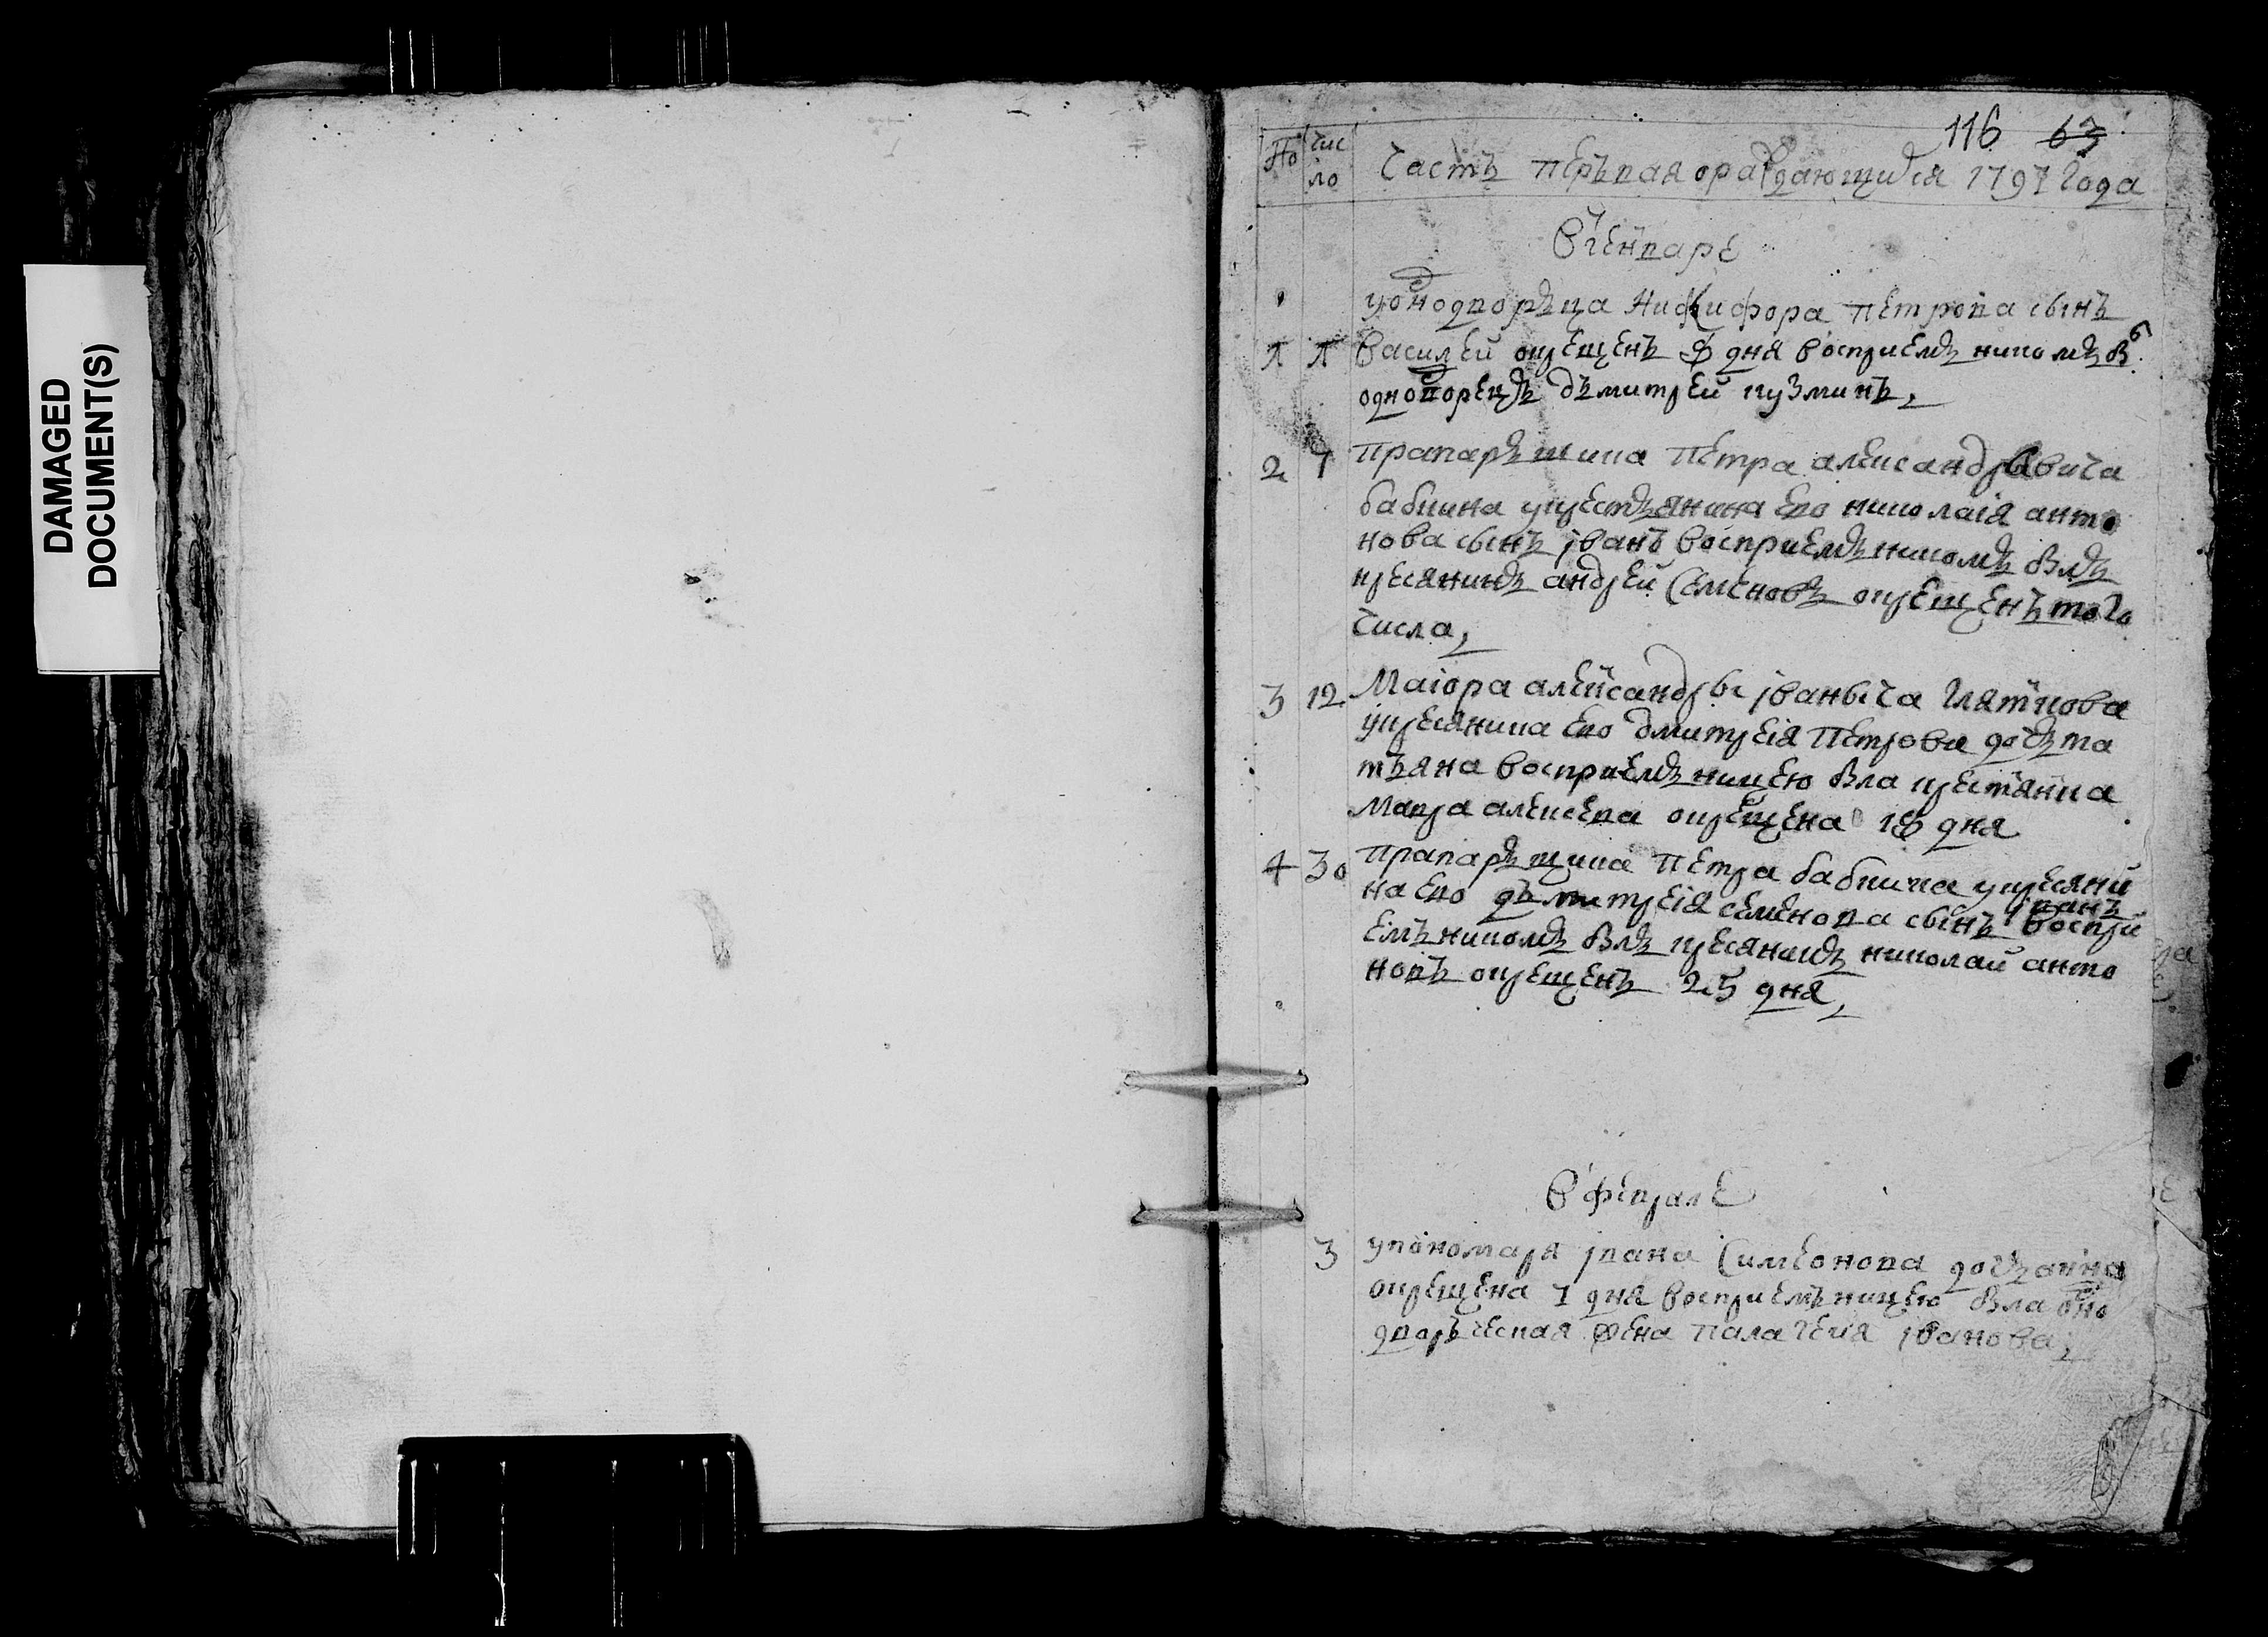 DAMAGED
DOCUMENT(S)
116 63
No чис
ло
Часть перъвая ораждающихся 1797 года
В генваре
уоднодворъца Никифора Петрова сынъ
1 1 Василей окрещенъ дня восприемъникомъ б
однодворецъ дъмитрей кузминъ,
2 7 Прапаръшика Петра александравича
бабкина укрестъянина ево николаія анто
нова сынъ јванъ восприемъникомъ былъ
кресянинъ андрей Семеновъ окрещенъ того
числа,
3 12 Маіора александры јваныча
укресянина ево дмитреія Петрова дочъ та
тъяна восприемъницею была крестянка
Мавра алексева окрещена дня
4 30 Прапаръщика Петра бабкина укресяни
на ево дъмитреія семенова сынъ јванъ воспри
емъникомъ былъ кресянинъ николай анто
новъ окрещенъ 25 дня,
В феврале
3 упономаря јвана Симеонова дочъ анна
окрещена 7 дня восприемъницею была одно
дворъческая жена палагея јванова,